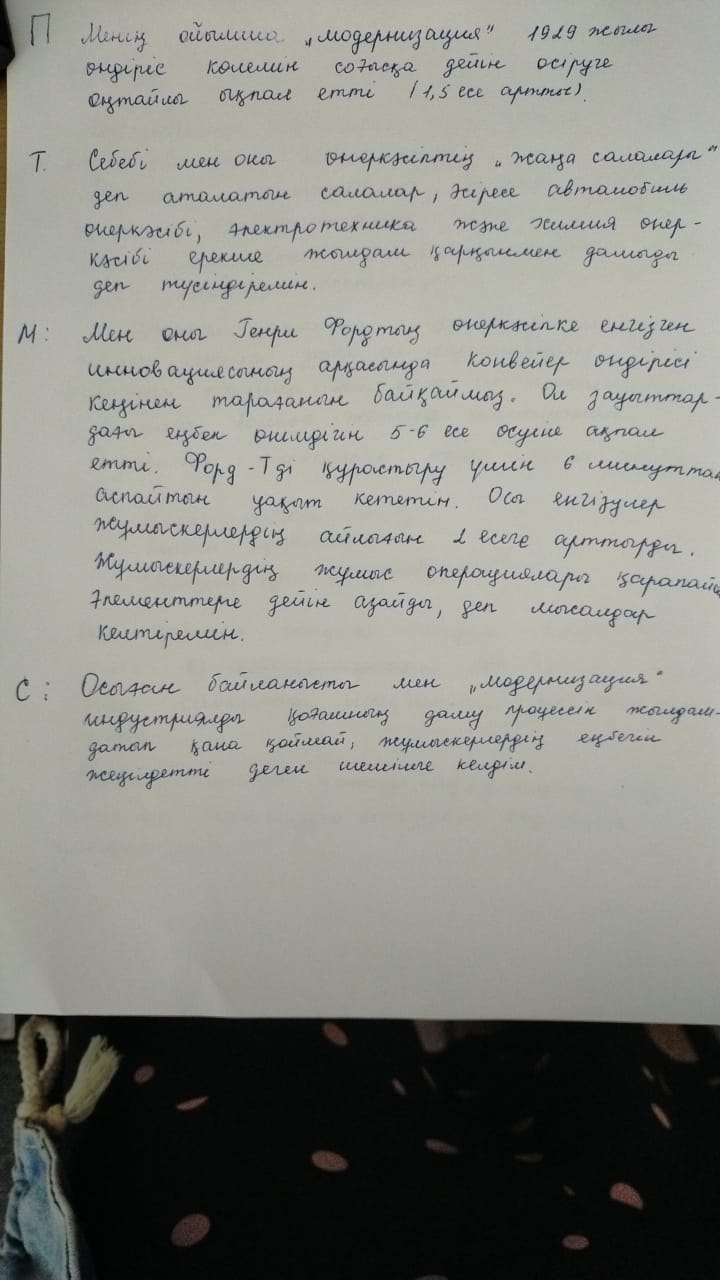 П Менің ойымша „модернизация" 1929 жылы
өндіріс көлемін соғысқа дейін өсіруге
оңтайлы ықпал етті (1,5 есе артты).
Т. Себебі мен оны өнеркәсіптің „жаңа салалары"
деп аталатын салалар, әсіресе автомобиль
өнеркәсібі, электротехника және химия өнер-
кәсібі ерекше жылдам қарқынмен дамыды
деп түсіндіремін.
М: Мен оны Генри Фордтың өнеркәсіпке енгізген
инновациясының арқасында конвейер өндірісі
кеңінен тарағанын байқаймыз. Ол зауыттар-
дағы еңбек өнімдігін 5-6 есе өсуіне ақпал
етті. Форд-Тді құрастыру үшін 6 минуттан
аспайтын уақыт кететін. Осы енгізулер
жұмыскерлердің айлығын 2 есеге арттырды.
Жұмыскерлердің жұмыс операциялары қарапайы
элементтерге дейін азайды, деп мысалдар
келтіремін.
С: Осыған байланысты мен „модернизация"
индустриялды қоғамның даму процессін жылдам-
датып қана қоймай, жұмыскерлердің еңбегін
жеңілдетті деген шешімге келдім.